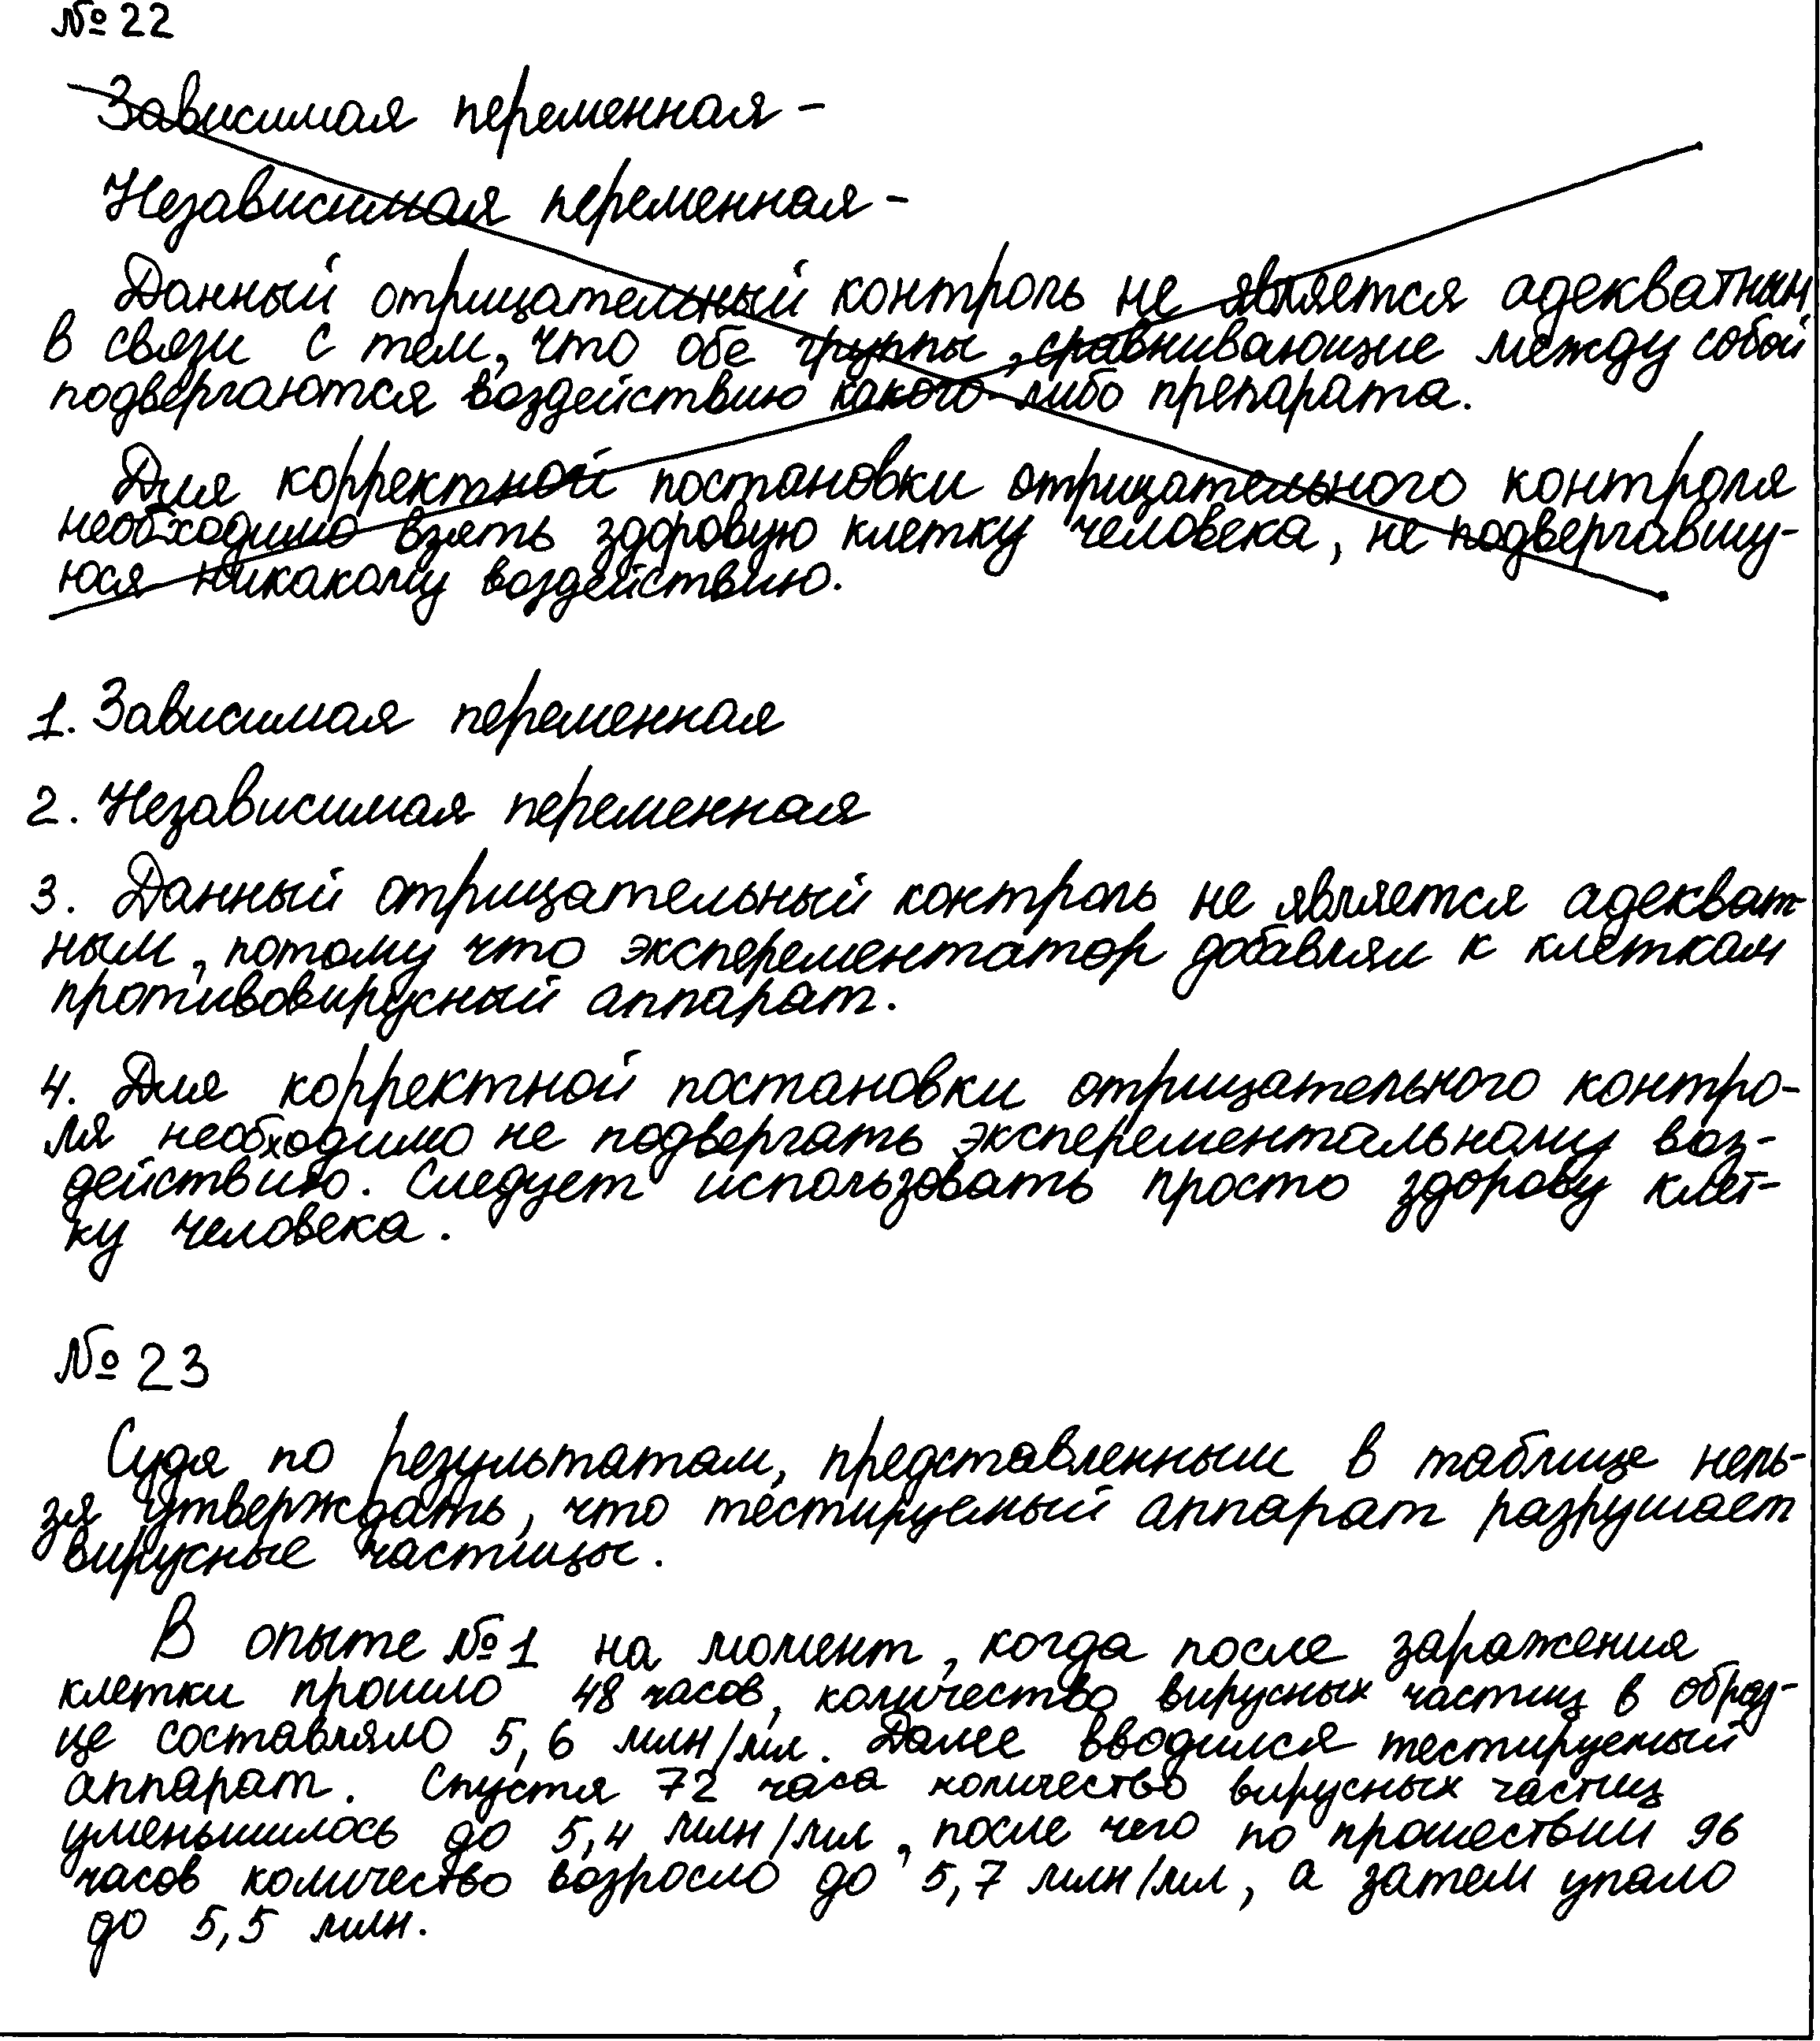 № 22
Зависимая переменная –
Независимая переменная –
Данный отрицательный контроль не является адекватным
в связи с тем, что обе группы, сравнивающие между собой
подвергаются воздействию какого-либо препарата.
Для корректной постановки отрицательного контроля
необходимо взять здоровую клетку человека, не подвергавшу-
юся никакому воздействию.
1. Зависимая переменная
2. Независимая переменная
3. Данный отрицательный контроль не является адекват-
ным, потому что эксперементатор добавлял к клеткам
противовирусный аппарат.
4. Для корректной постановки отрицательного контро-
ля необходимо не подвергать эксперементальному воз-
действию. Следует использовать просто здорову клет-
ку человека.
№ 23
Судя по результатам, представленным в таблице нель-
зя утверждать, что тестируемый аппарат разрушает
вирусные частицы.
В опыте №1 на момент, когда после заражения
клетки прошло 48 часов, количество вирусных частиц в образ-
це составляло 5,6 млн/мл. Далее вводился тестируемый
аппарат. Спустя 72 часа количество вирусных частиц
уменьшилось до 5,4 млн/мл, после чего по прошествии 96
часов количество возросло до 5,7 млн/мл, а затем упало
до 5,5 млн.